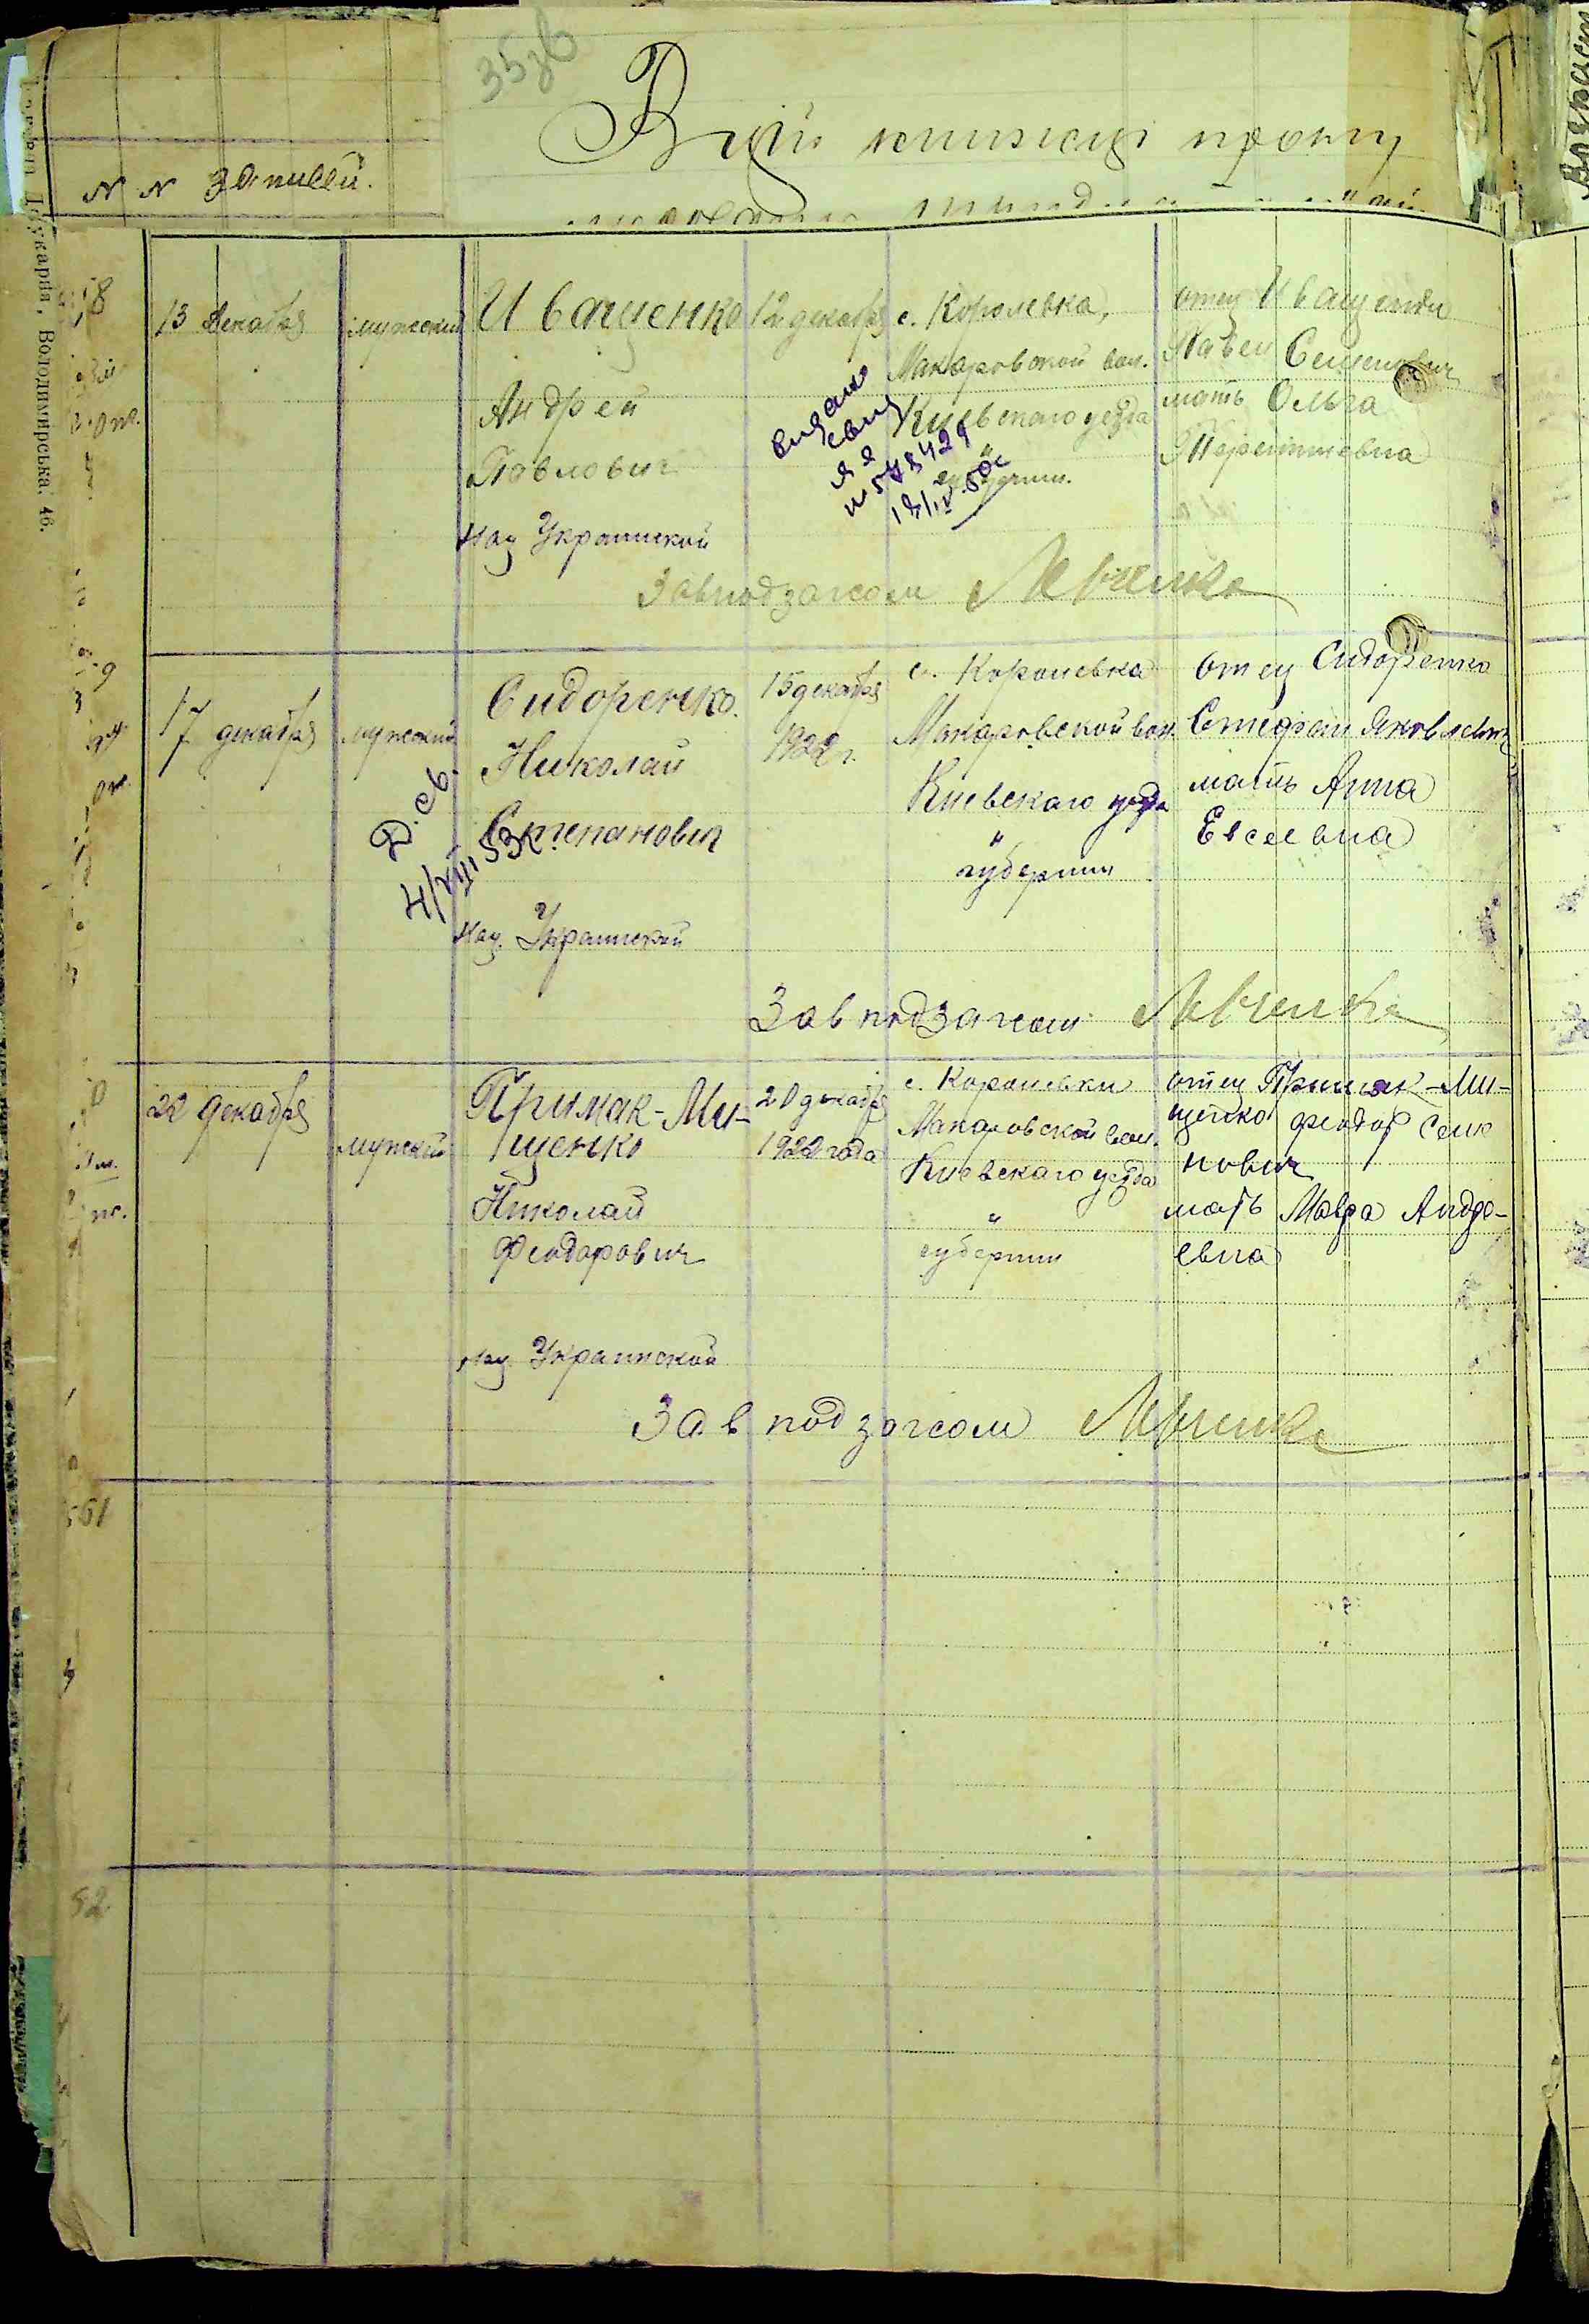 35зв
В цій книжці прошу
N N записей.
Володимирська, 46.
58
13 декабря
мужский
Иващенко
Андрей
Павлович
Нац Украинской
12 декабря
с. Королевка,
Макаровской вол.
Киевского уезда
"
губерни.
отец Иващенко
Павел Семенович
мать Ольга
Терентиевна
видано
свид
№ 573429
Завподзагсом Левченко
9
17 декабря
мужский
Сидоренко.
Николай
Степанович
Нац. Украинской
15 декабря
1922 г.
с. Королевка
Макаровской вол.
Киевскаго уезда
"
губернии
отец Сидоренко
Стефан Яковлевич
мать Анна
Евсеевна
Д. св.
4/VIII 53 г.
Зав подзагсом Левченко
22 декабря
мужский
Примак-Ми-
щенко
Николай
Феодорович
Нац. Украинской
20 декабря
1922 года
с. Королевки
Макаровской вол.
Киевскаго уезда
"
губернии
отец Примак-Ми-
щенко Феодор Семе
нович
мать Мавра Андре-
евна
Зав подзагсом Левченко
561
52